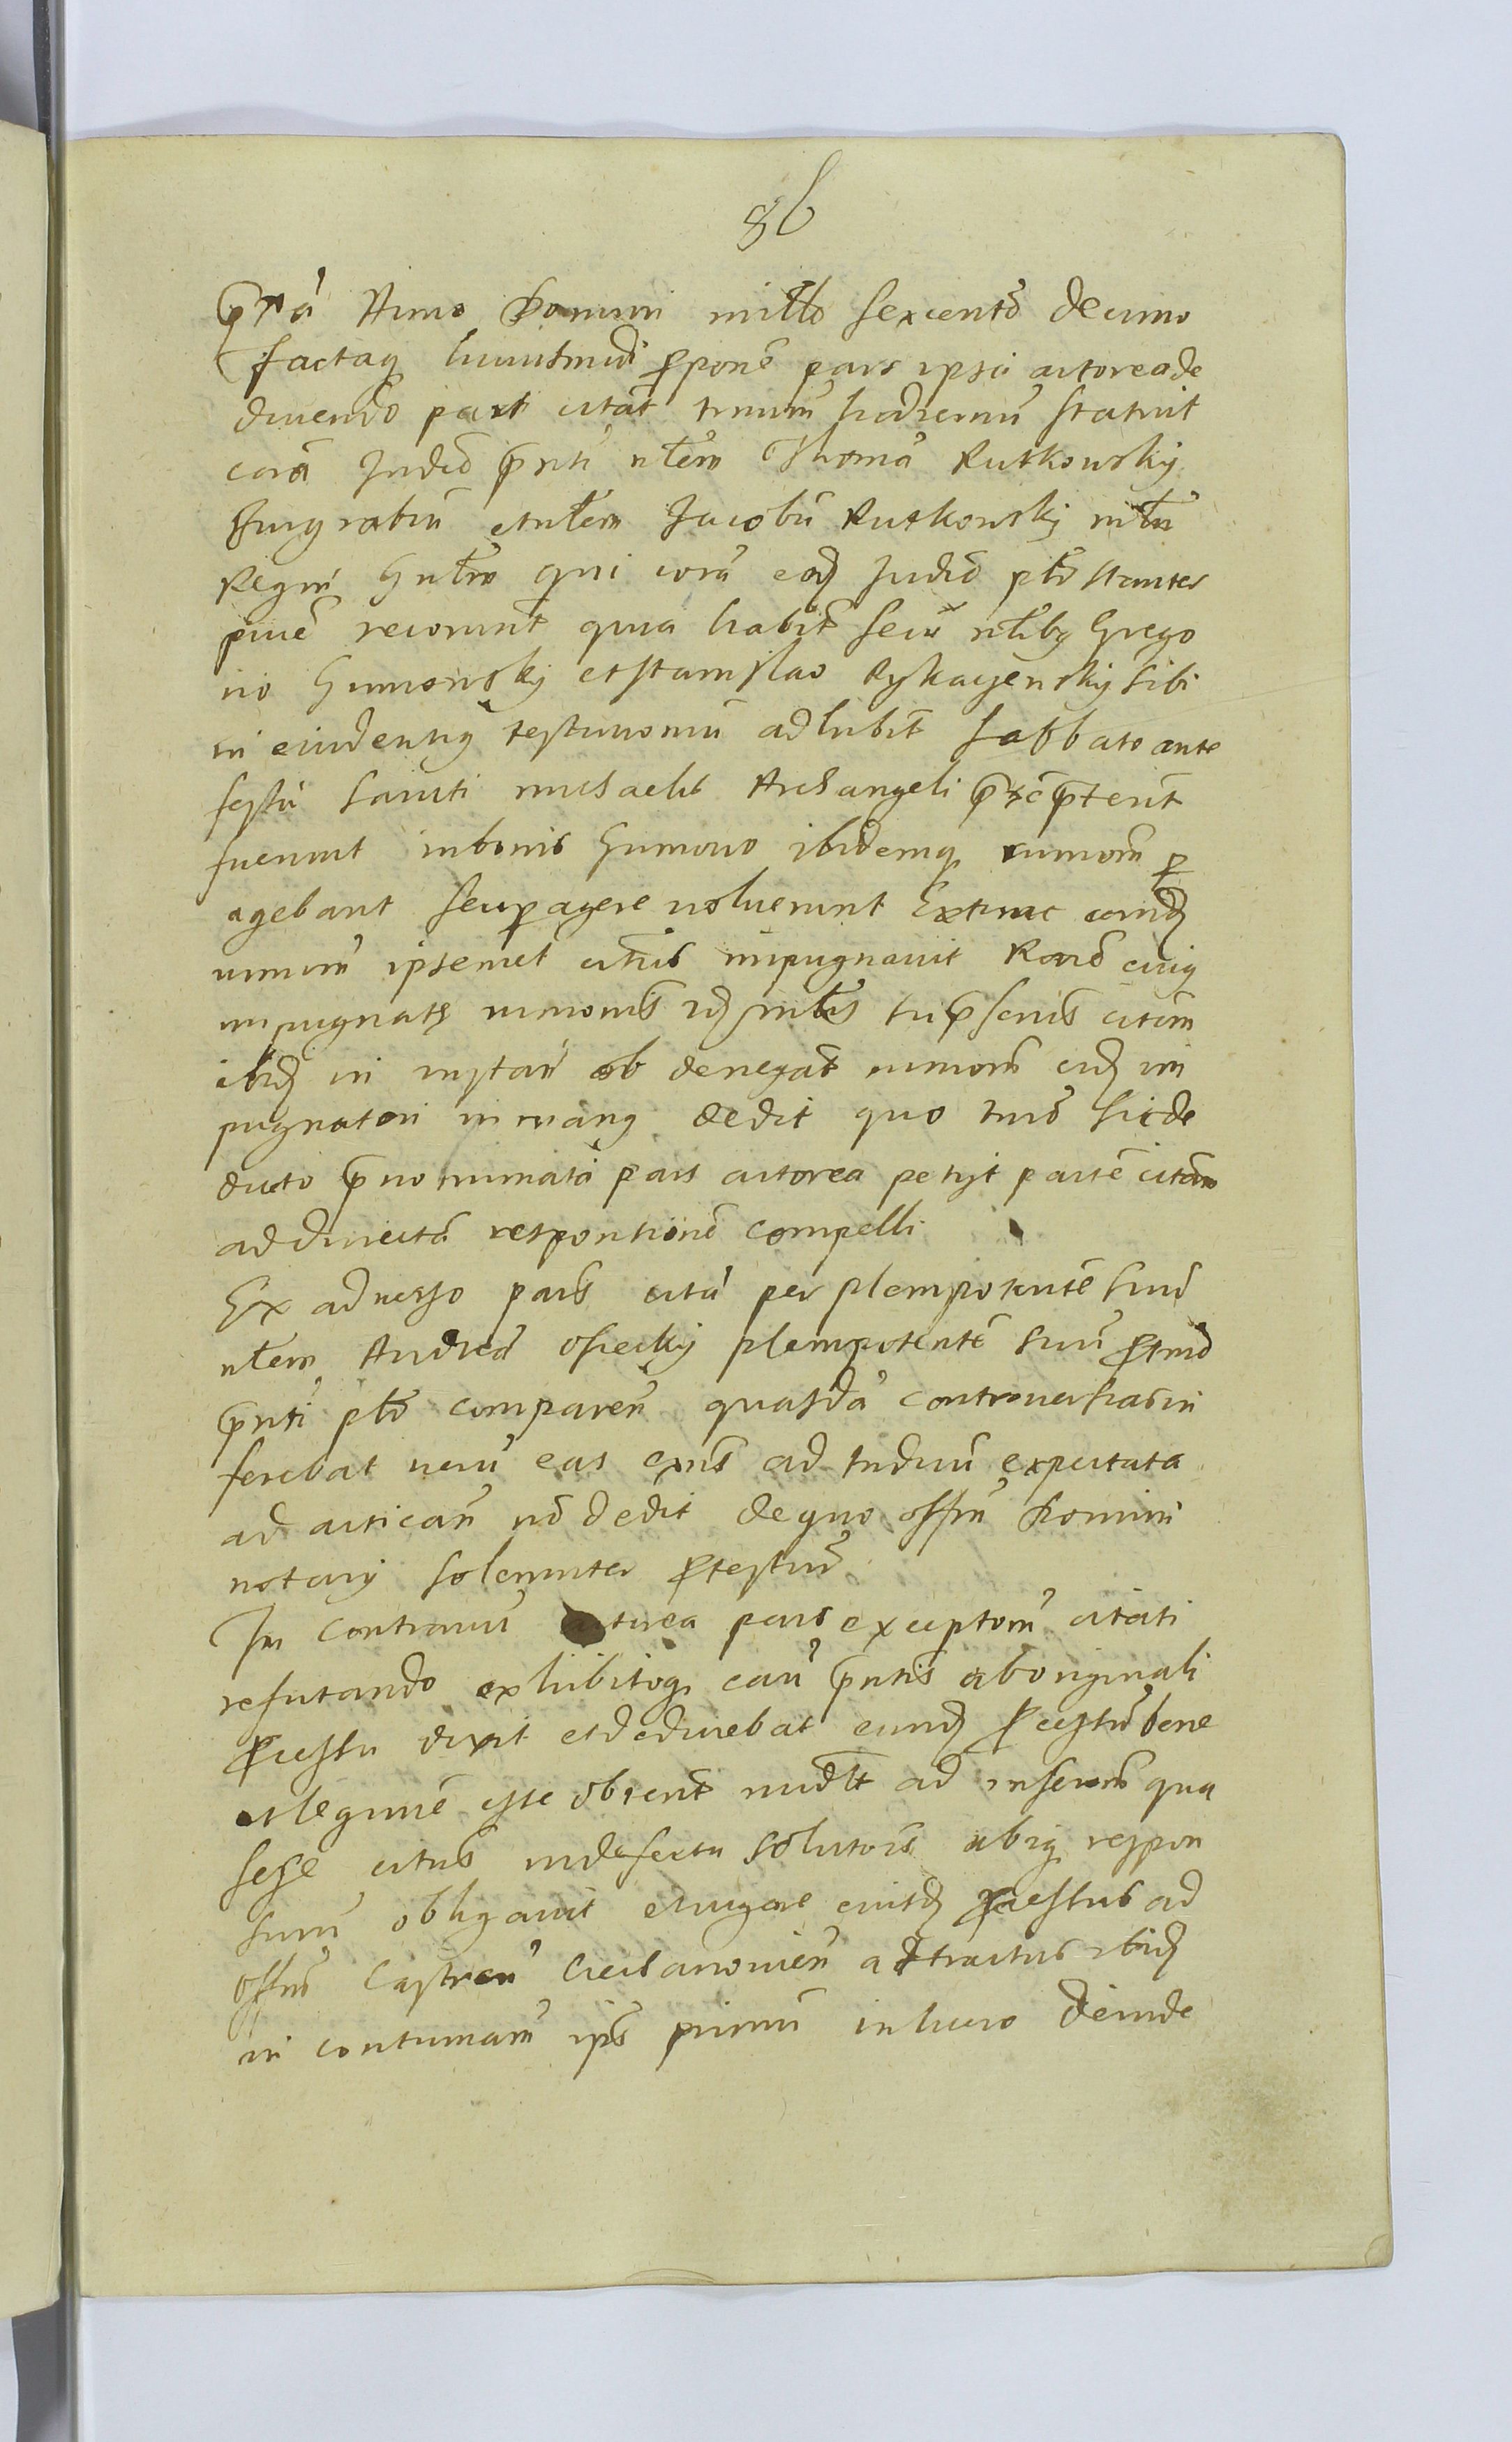 86
p̄xa Anno Domini millo sexcento Decimo
factaq huiusmodi ppone pars ipsa actorea de
ducendo parti citat tnnum hodiernu statuit
cora Judio p̄nti nlem Thoma Rutkowsky
Burgrabiu et nlem Jacobu Rutkowsky mlu
Regni Gnlem qui cora eod Judio plr stantes
piue recorunt quia habit secu nlibq Grego
rio Gumowsky et Stanislao Rykaczewsky sibi
in euidentiq testimoniu adhibit Sabbato ante
festu Sancti michaelis Archangeli p̄xe p̄terit
fuerunt in bonis Gumowo ibidemq rumom p
agebant seu pagere voluerunt Extunc eomd
rumum ipsemet citus impugnauit Rone cuiq
impugnats rumonis id mlis citum
ibid in instan ob denegat rumom eid im
pugnatori in manq dedit quo tnio sic de
ducto p̄nominata pars actorea petijt parte citam
ad directa responsione compelli
Ex aduerso pars cita per plempotente suu
nlem Andrea Osiecky plempotente suu
p̄nti plr comparen quasda controuersias in
ferebat veru eas exnes ad Judiciu expectata
ad acticam no dedit de quo offm Domini
notarij solemniter ptestur
In contrariu actorea pars exceptom citati
refutando exhibitoq cam p̄ntis ab originali
pcessu dixit et deducebat eund pcessu bene
et legitime esse obtent ad inserom qua
sese citus in defectu solutois absq respon
suru obligauit et vigore eiusd pcessus ad
offm Castren Ciechanouien attractus ibid
in contumam ips primu in lucro deinde